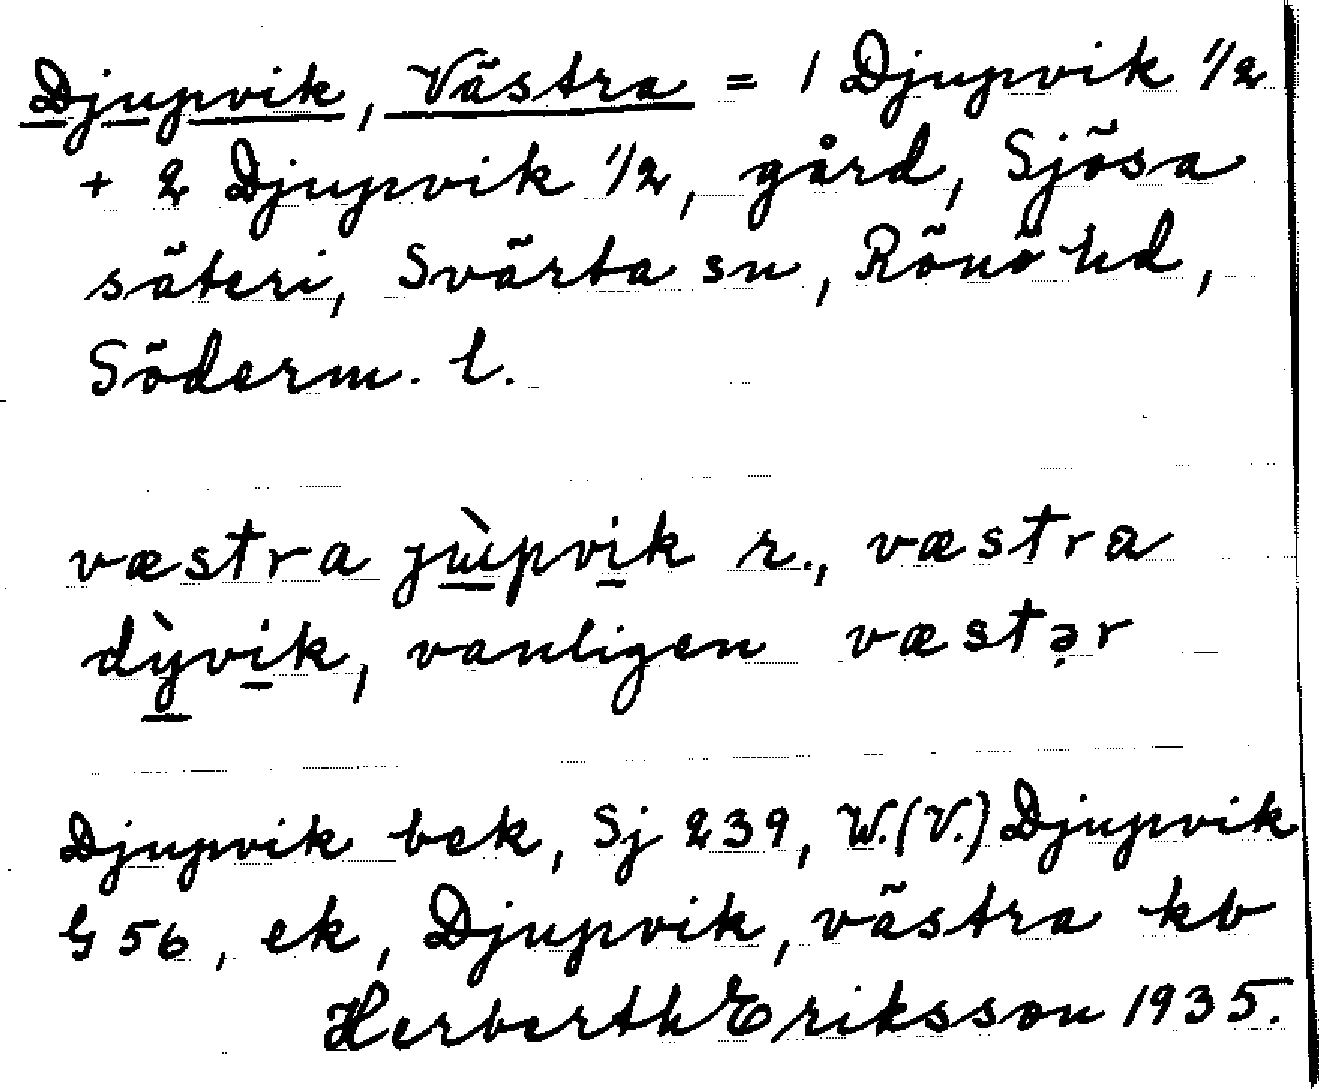 Djupvik, Västra = 1 Djupvik 1/2
+ 2 Djupvik 1/2, gård, Sjösa
säteri, Svärta sn, Rönö hd,
Söderm. l.
væstra jɯ̀pvik r., væstra
dỳvik, vanligen væstər
Djupvik bek, Sj 239, W.(V.) Djupvik
G 56, ek, Djupvik, västra kb
Herberth Eriksson 1935.